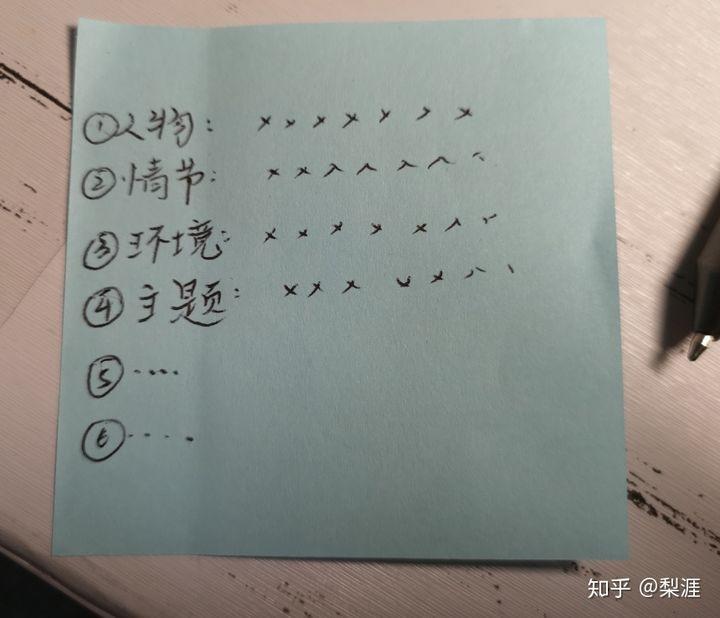 ①人物: ×××××××
②情节:
③环境:
④主题:
⑤····
⑥····
知乎 @梨涯